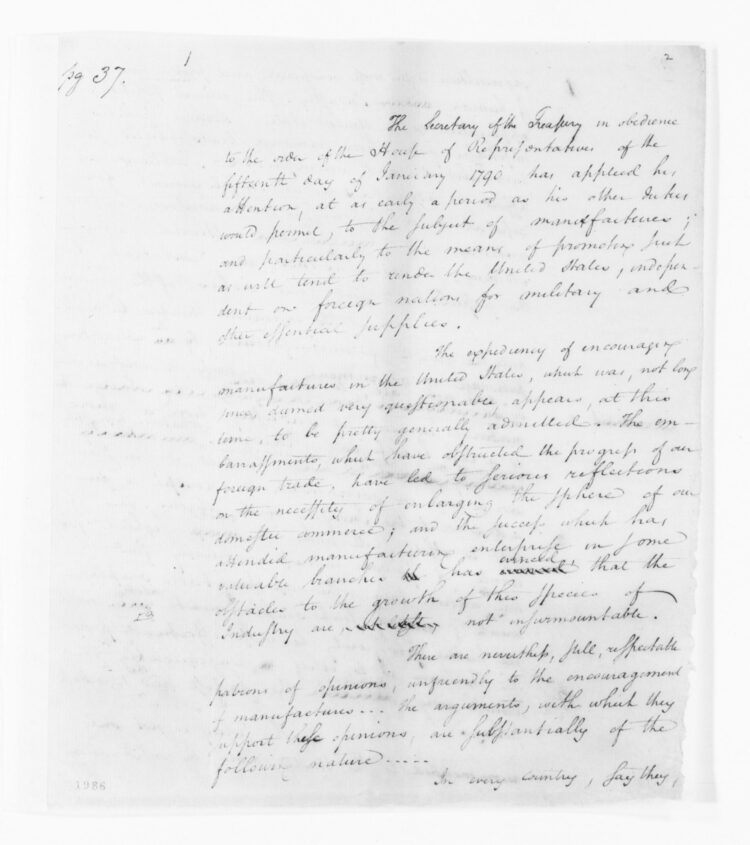 pg 37.
1
2
The Secretary of the Treasury in obedience
to the order of the House of Representatives of the
fifteenth day of January 1790 has applied his
attention, at as early a period as his other duties
would permit, to the subject of manufactures;
and particularly to the means of promoting such
as will tend to render the United States, indepen-
dent on foreign nations for military and
other essential supplies.
The expediency of encouraging
manufactures in the United States, which was, not long
since, deemed very questionable, appears, at this
time, to be pretty generally admitted. The em-
barrassments, which have obstructed the progress of our
foreign trade, have led to serious reflections
on the necessity of enlarging the sphere of our
domestic commerce; and the success which has
attended manufacturing enterprise in some
evinced
valuable branches has that the
obstacles to the growth of this species of
Industry are not insurmountable.
There are nevertheless, still, respectable
patrons of opinions, unfriendly to the encouragement
of manufactures... the arguments, with which they
support these opinions, are substantially of the
following nature.....
In every country, say they,
1986